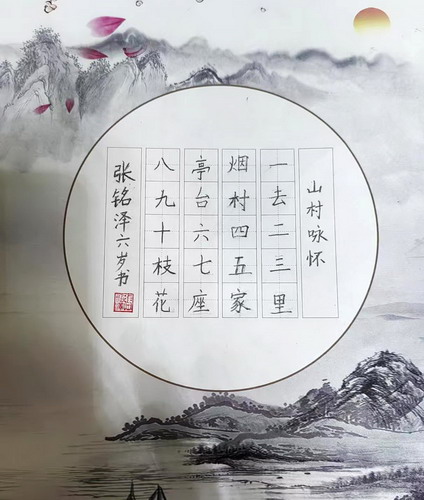 山村咏怀
一去二三里
烟村四五家
亭台六七座
八九十枝花
张铭泽六岁书